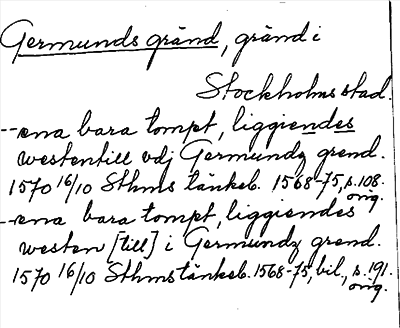 Germunds gränd, gränd i
Stockholms stad.
--ena bara tompt, liggiendes
westentill vdj Germundz grend.
1570 16/10 Sthms tänkeb. 1568-75, s. 108.
orig.
--ena bara tompt, liggiendes
westen [till] i Germundz grend.
1570 16/10 Sthms tänkeb. 1568-75, bil., s. 191.
orig.